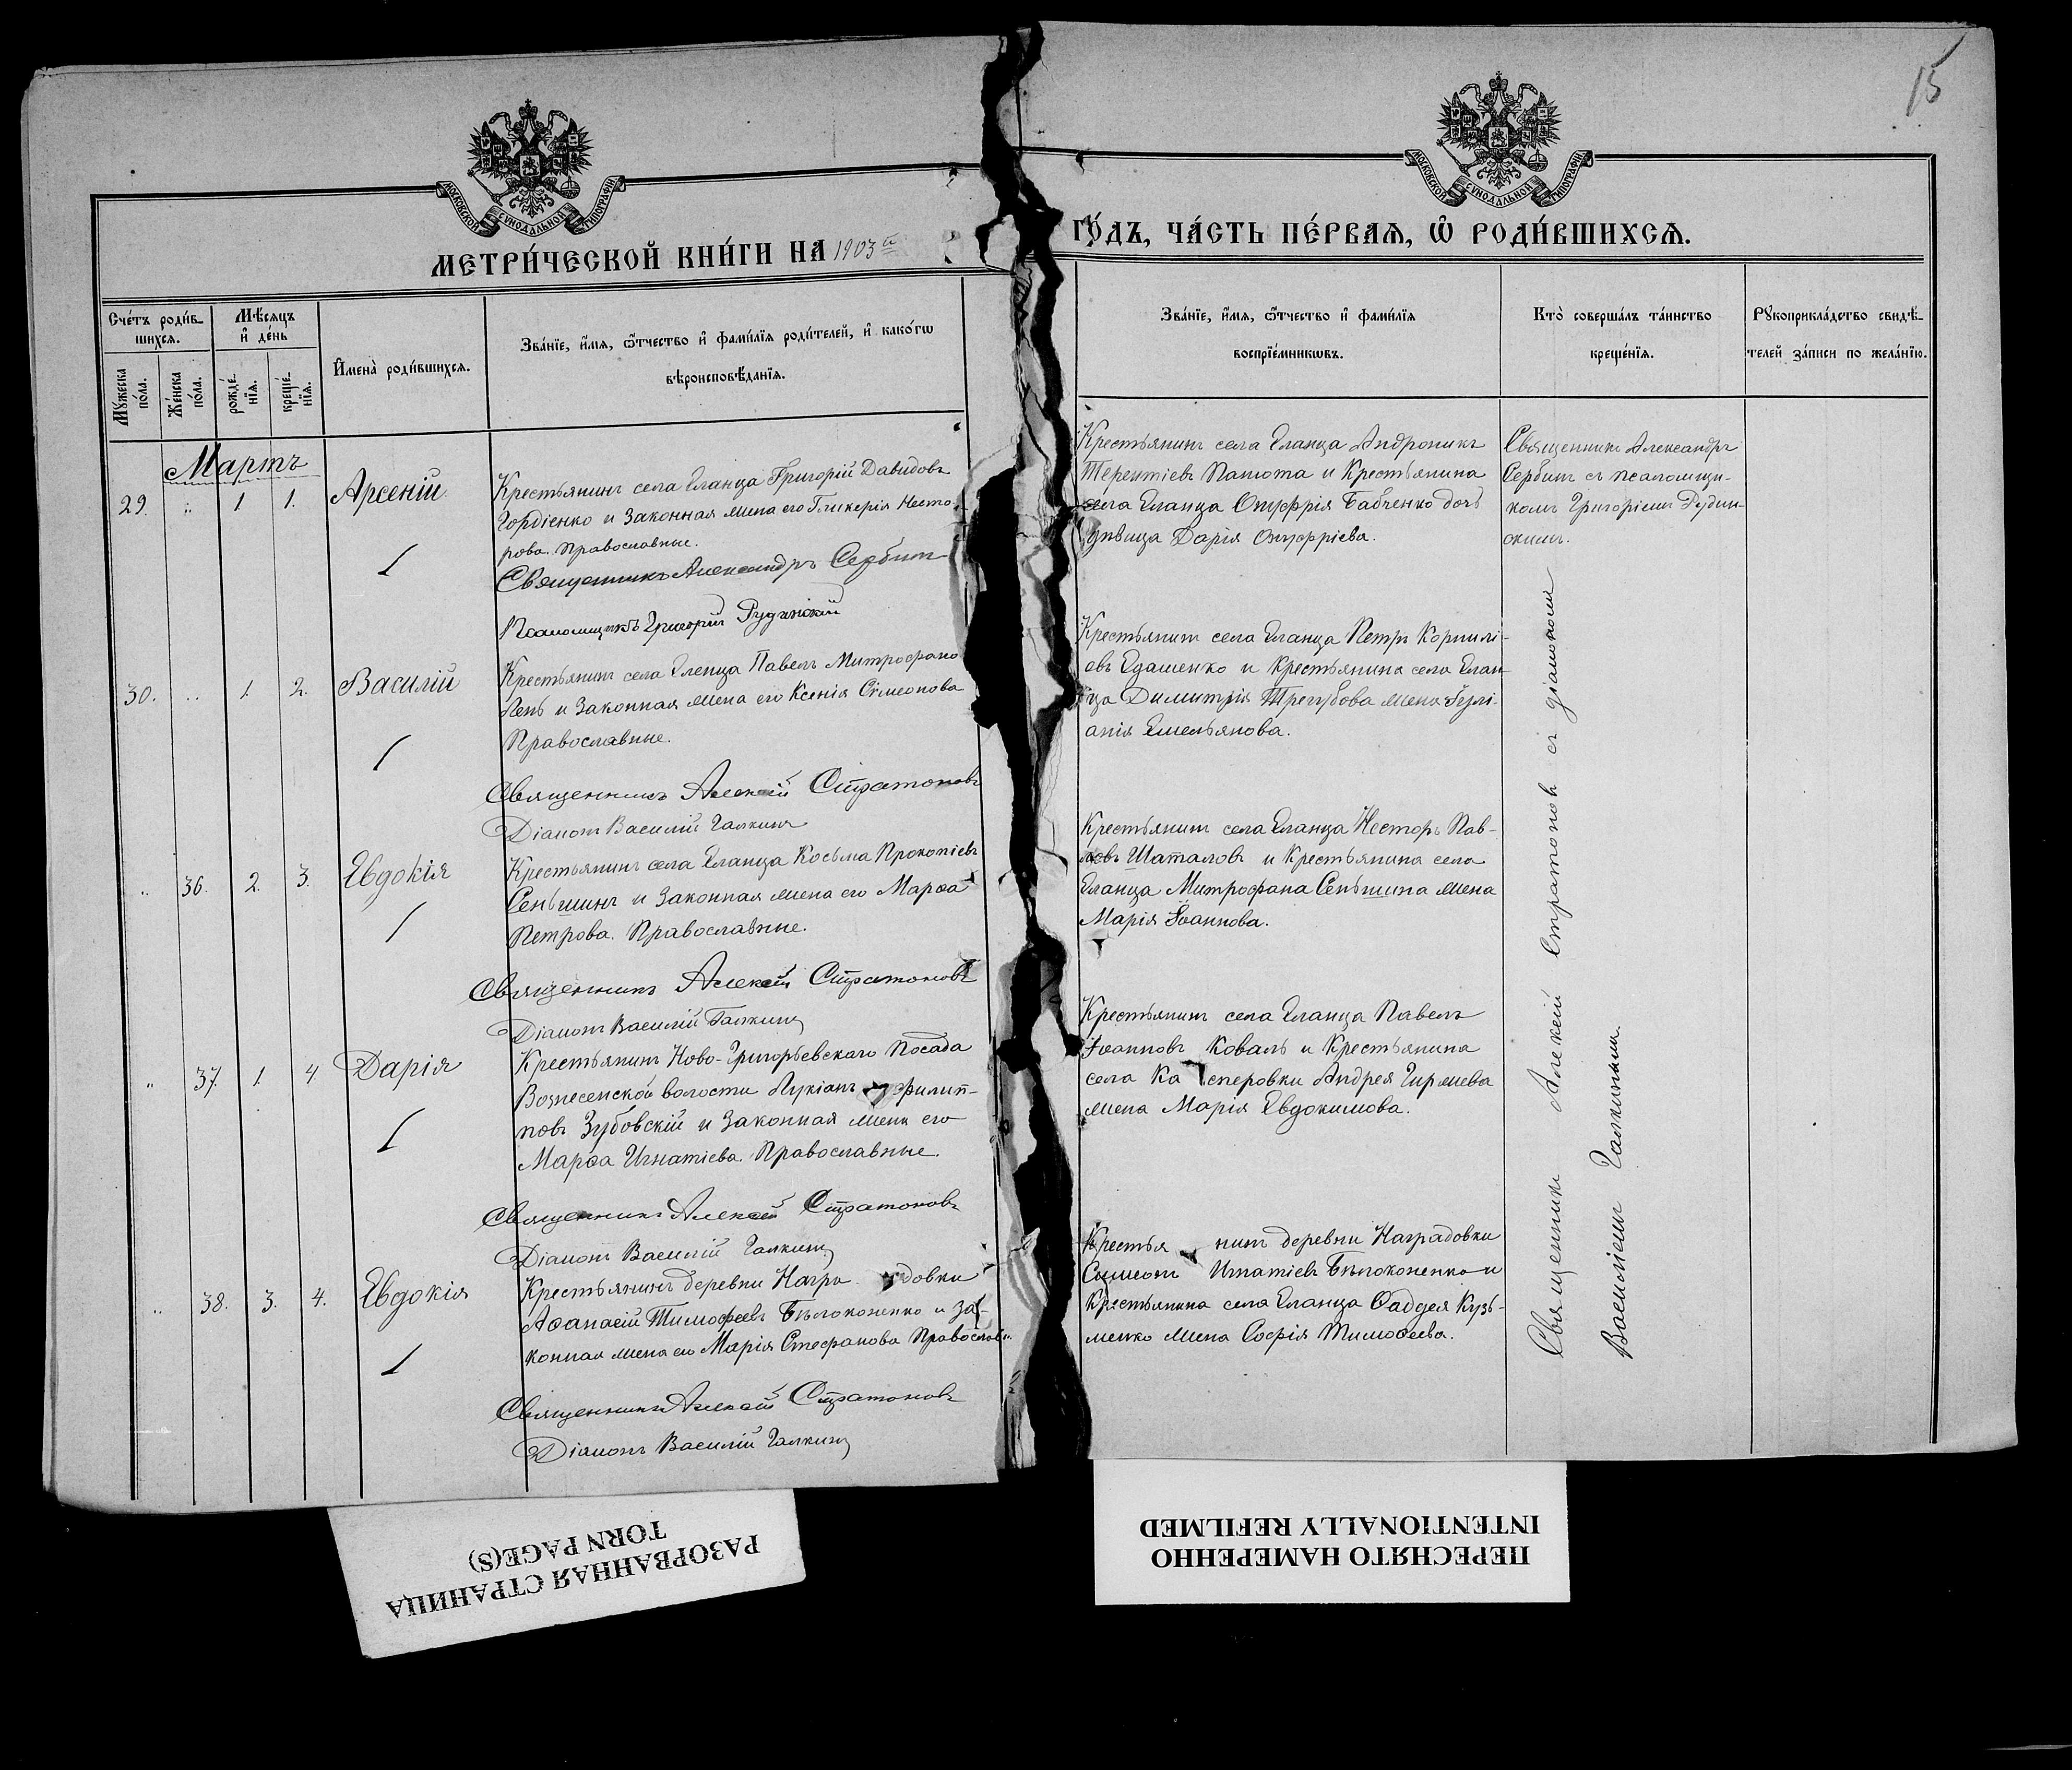 15
МОСКОВСКОЙ СУНОДАЛЬНОЙ ТИПОГРАФІИ
МОСКОВСКОЙ СУНОДАЛЬНОЙ ТИПОГРАФІИ
МЕТРИ́ЧЕСКОЙ КНИ́ГИ НА 1903й ГО́ДЪ, ЧА́СТЬ ПЕ́РВАЯ, Ѡ РОДИ́ВШИХСЯ.
Сче́тъ роди́в-
шихся.
Мꙋ́жеска по́ла.
Же́нска по́ла.
Мѣ́сяцъ
и҆ де́нь
рожде́-
нїя.
креще́-
нїя.
И҆мена̀ роди́вшихся.
Зва́нїе, и҆́мя, ѻ҆́тчество и҆ фами́лїя роди́телей, и҆ како́гѡ
вѣроисповѣ́данїя.
Зва́нїе, и҆́мя, ѻ҆́тчество и҆ фами́лїя
воспрїе́мникѡвъ.
Кто̀ соверша́лъ та́инство
креще́нїя.
Рꙋкоприкла́дство свидѣ́-
телей за́писи по жела́нїю.
Мартъ
29. " 1 1. Арсеній
Крестьянинъ села Еланца Григорій Давидовъ
Гордіенко и законная жена его Гликерія Несто-
рова. Православные.
Священникъ Александръ Сербин
Псаломщикъ Григорій Рудинскій
Крестьянинъ села Еланца Андроникъ
Терентіевъ Папюта и Крестьянина
села Еланца Онуфрія Бабченко дочь
дѣвица Дарія Онуфріева.
Священникъ Александръ
Сербинъ съ псаломщи-
комъ Григоріемъ Рудин-
скимъ.
30. " 1. 2. Василій
Крестьянинъ села Еленца Павелъ Митрофано
Лень и законная жена его Ксенія Симеонова
Православные.
Священникъ Алексій Стратоновъ
Діаконъ Василій Галкинъ
Крестьянинъ села Еланца Петръ Корнилі-
евъ Едашенко и Крестьянина села Елан-
ца Димитрія Трегубова жена Іулі-
анія Емельянова.
" 36. 2. 3. Евдокія
Крестьянинъ села Еланца Косьма Прокопіевъ
Сеньшинъ и законная жена его Марѳа
Петрова. Православные.
Священникъ Алексій Стратоновъ
Діаконъ Василій Галкинъ
Крестьянинъ села Еланца Несторъ Пав-
ловъ Шаталовъ и Крестьянина села
Еланца Митрофана Сеньшина жена
Марія Іоаннова.
" 37. 1. 4. Дарія
Крестьянинъ Ново-Григорьевскаго Посада
Вознесенской волости Лукіанъ Филип-
повъ Зубовскій и законная жена его
Марѳа Игнатіева. Православные.
Священникъ Алексій Стратоновъ
Діаконъ Василій Галкинъ
Крестьянинъ села Еланца Павелъ
Іоанновъ Коваль и Крестьянина
села Касперовки Андрея
жена Марія Евдокимова.
" 38. 3. 4. Евдокія
Крестьянинъ деревни Наградовки
Аѳанасій Тимофеевъ Бѣлоконенко и за-
конная жена его Марія Стефанова Православн.
Священникъ Алексій Стратоновъ
Діаконъ Василій Галкинъ
Крестьянинъ деревни Наградовки
Симеонъ Игнатіевъ Бѣлоконенко и
Крестьянина села Еланца Ѳаддея Кузь-
менко жена Софія Тимоѳеева.
Священникъ Алексій Стратоновъ съ діакономъ
Василіемъ Галкинымъ.
РАЗОРВАННАЯ СТРАНИЦА
TORN PAGE(S)
ПЕРЕСНЯТО НАМЕРЕННО
INTENTIONALLY REFILMED